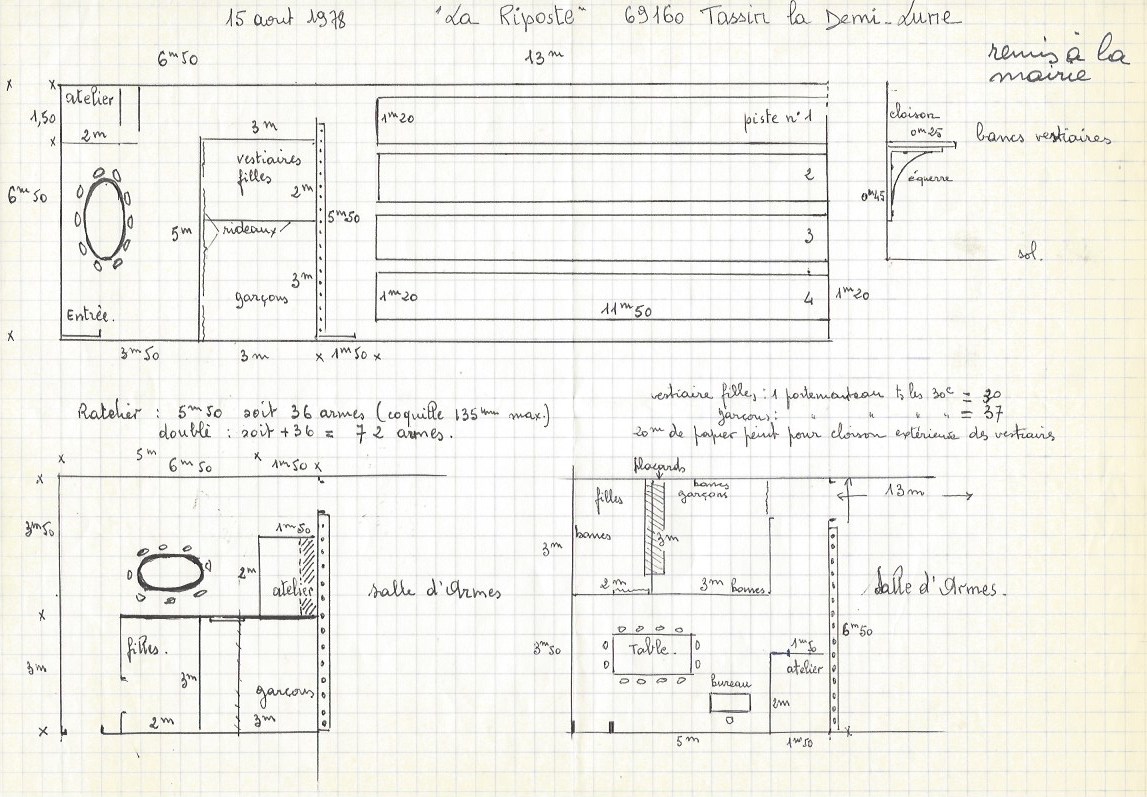 15 aout 1978 "La Riposte" 69160 Tassin la Demi-Lune
remis à la
mairie
6m50 13m
atelier
1,50
2m
3m
1m20
piste n°1
cloison
0m25
bancs vestiaires
vestiaires
filles
2m
2
équerre
0m45
6m50
5m
rideaux
5m50
3
sol.
3m
garçons
Entrée.
1m20
11m50
4
1m20
3m50
3m
x 1m50 x
vestiaire filles : 1 portemanteau ts les 30c = 20
garçons : " " " = 37
20m de papier peint pour cloison extérieure des vestiaires
Ratelier : 5m50 soit 36 armes (coquille 135mm max.)
doublé : soit +36 = 72 armes.
5m
6m50
1m50
3m50
1m50
2m
atelier
salle d'Armes
filles.
3m
3m
garçons
2m
3m
placards
filles
bancs
garçons
13m
bancs
3m
3m
2m
3m bancs
salle d'Armes.
3m50
Table.
6m50
1m50
atelier
bureau
2m
5m
1m50